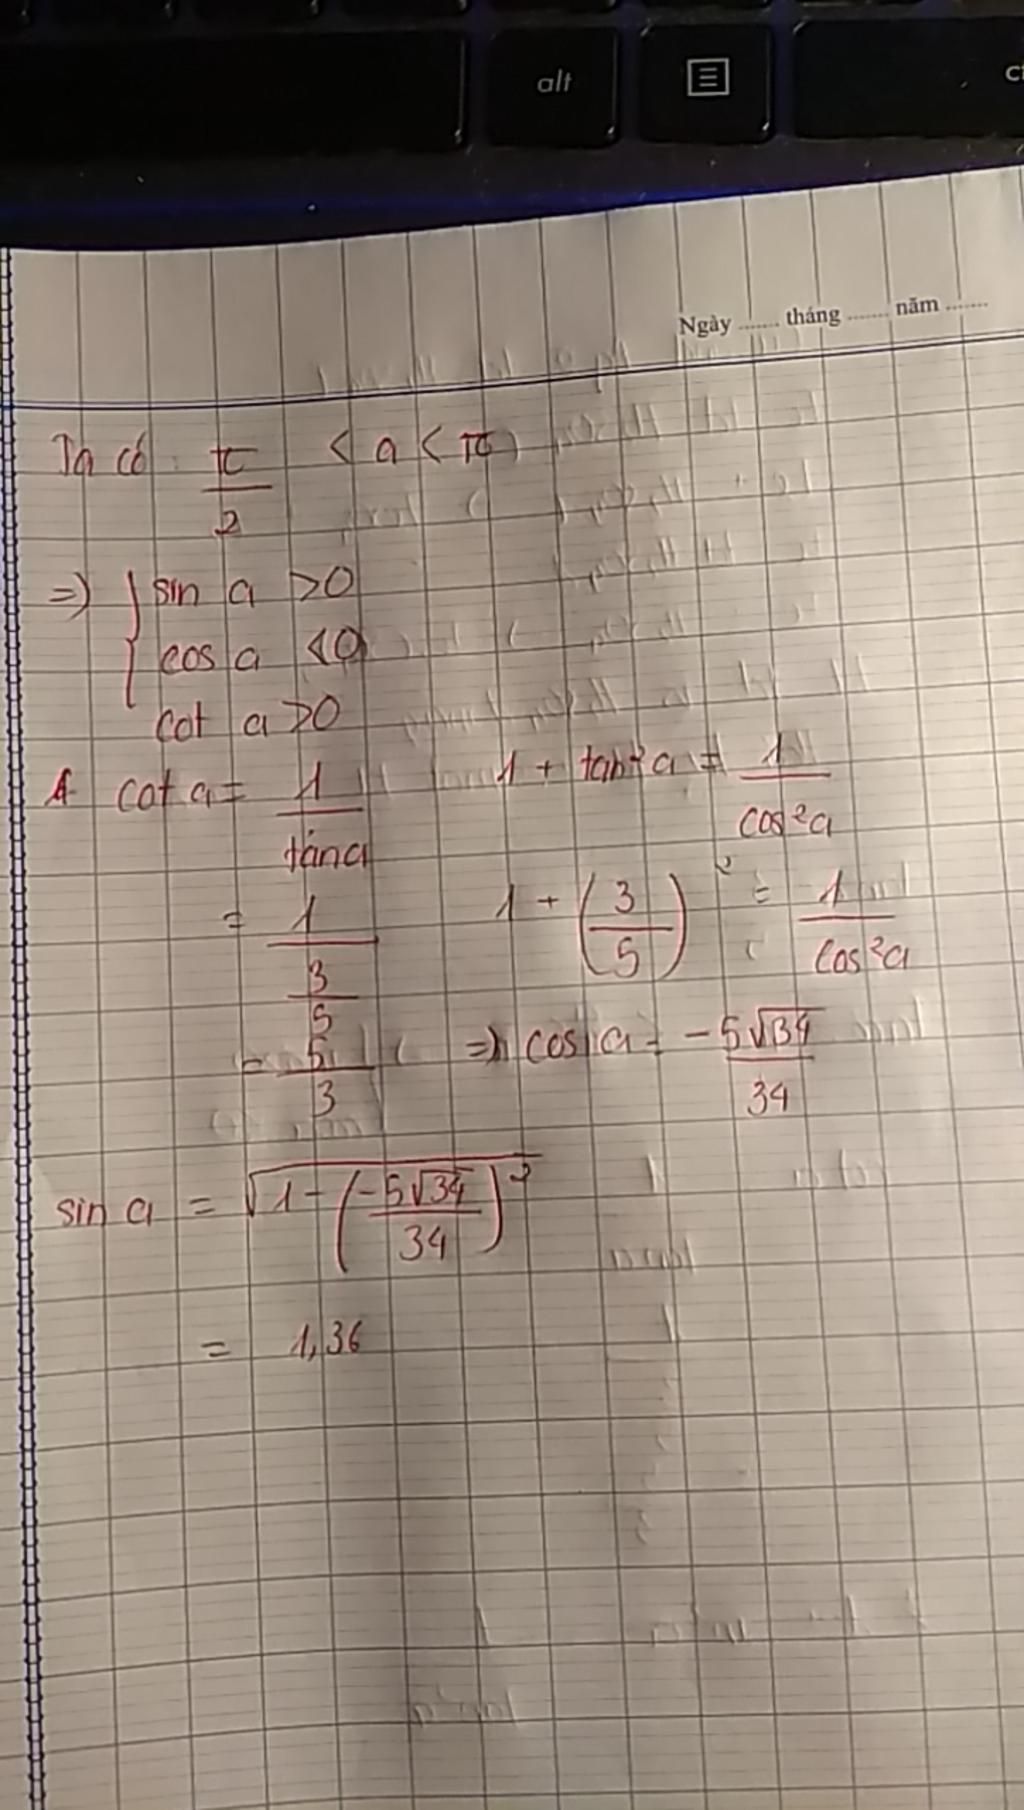 alt
Ngày ....... tháng ....... năm .......
Ta có π/2 < a < π
=> { sin a > 0
cos a < 0
cot a > 0
cot a = 1/tan a
1 + tan²a = 1/cos²a
= 1/(3/5)
1 + (3/5)² = 1/cos²a
= 5/3
=> cos a = -5√34/34
sin a = √(1-(-5√34/34)²)
= 1,36